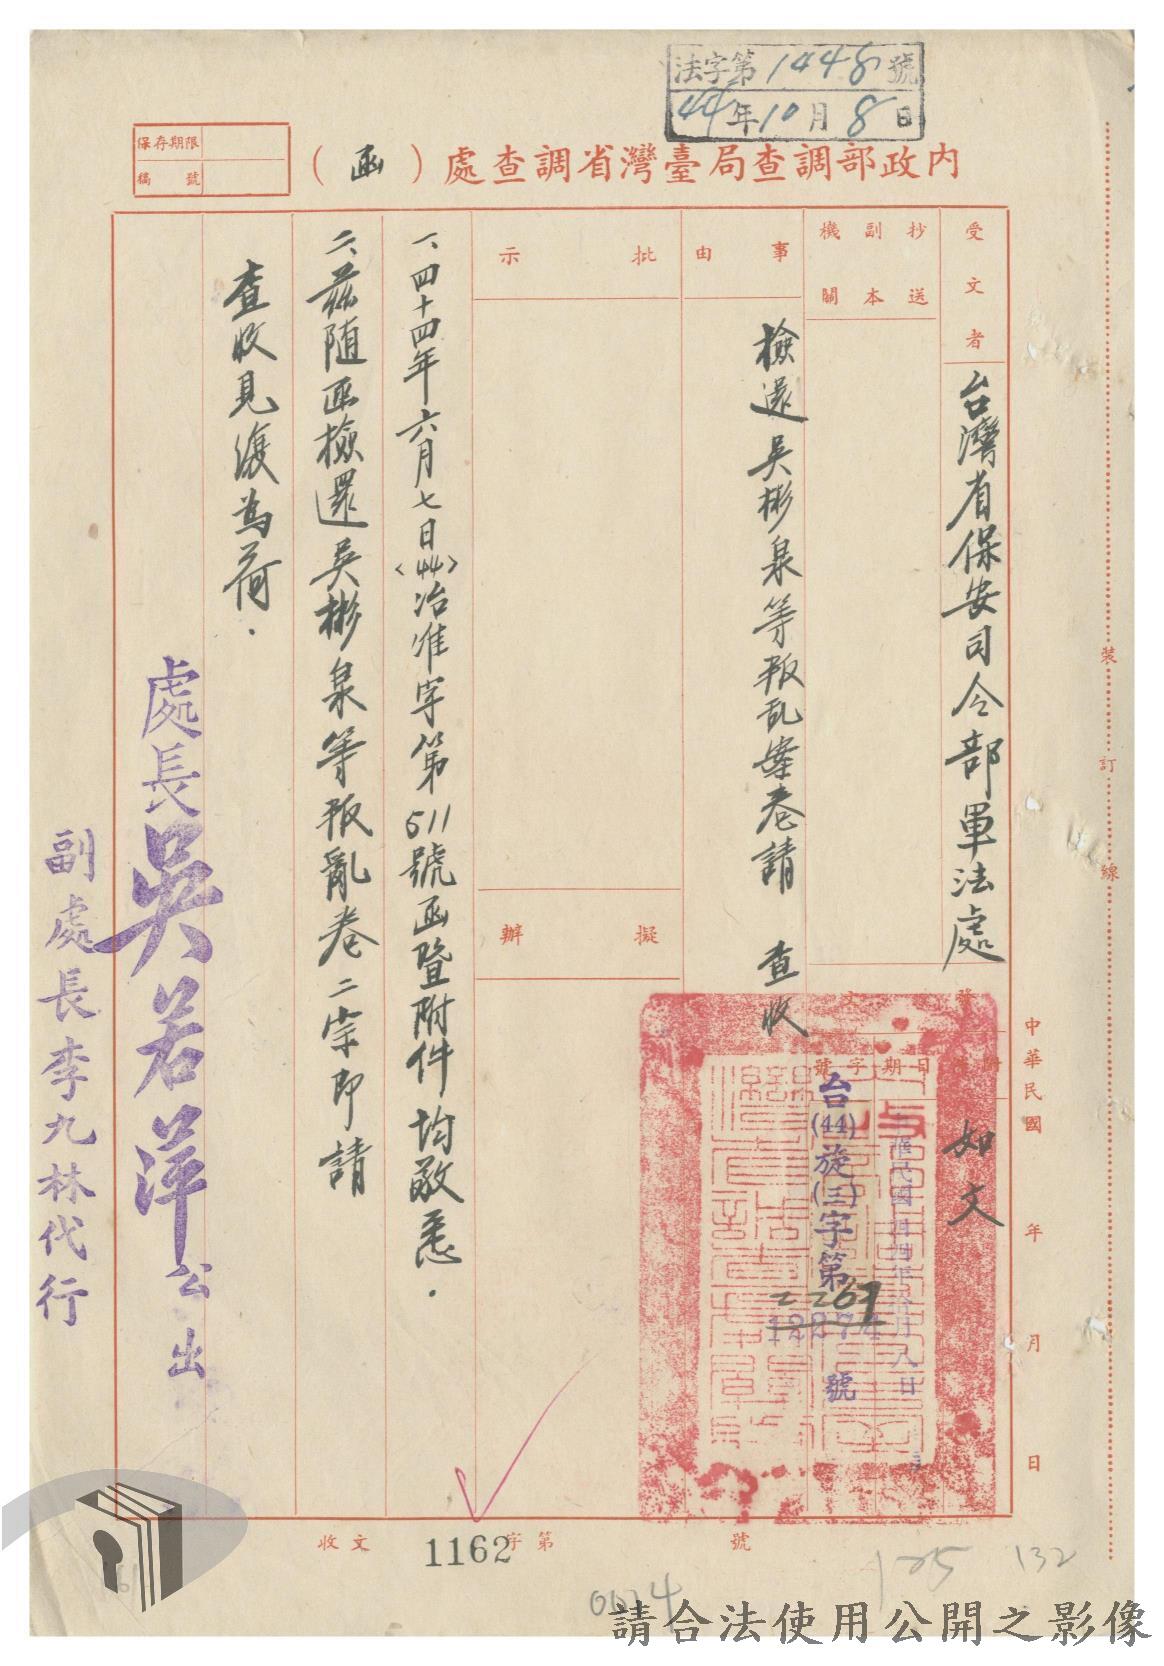 法字第1448號
44年10月8日
保存期限
稿號
內政部調查局臺灣省調查處（函）
受文者
台灣省保安司令部軍法處
抄送副本機關
事由
檢還吳彬泉等叛乱案卷請 查收
批示
擬辦
發文
附件
如文
日期
字號
中華民國四四年拾月八日
台(44)旋(三)字第
2267
12274
號
一、四十四年六月七日(44)治准字第511號函暨附件均敬悉．
二、茲隨函檢還吳彬泉等叛亂卷二宗即請
查收見復為荷．
處長吳若萍公出
副處長李九林代行
中華民國 年 月 日
裝訂線
收文 字第 號
1162
0024
125
132
請合法使用公開之影像